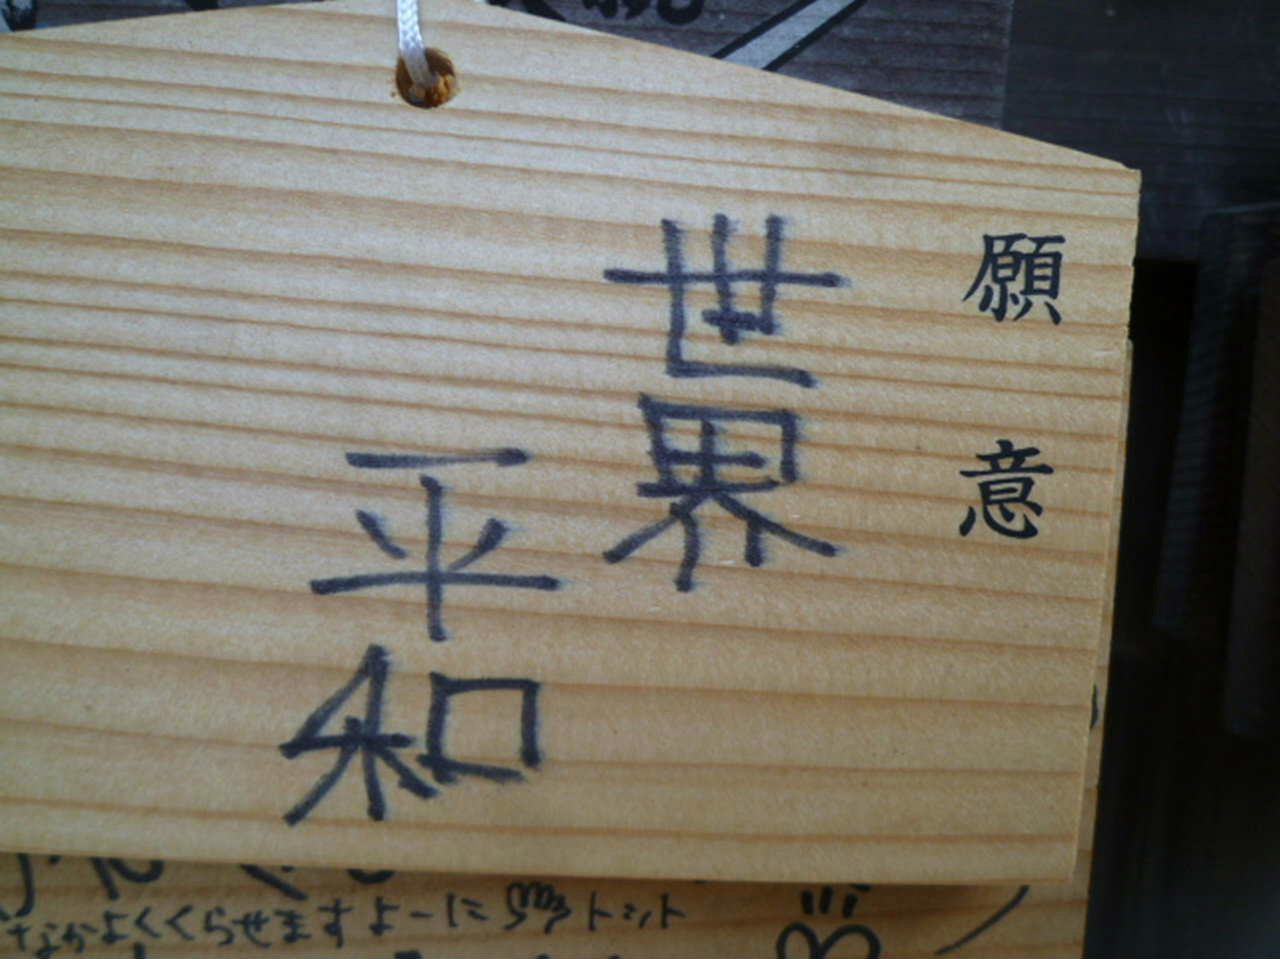 願意
世界
平和
なかよくくらせますよーに